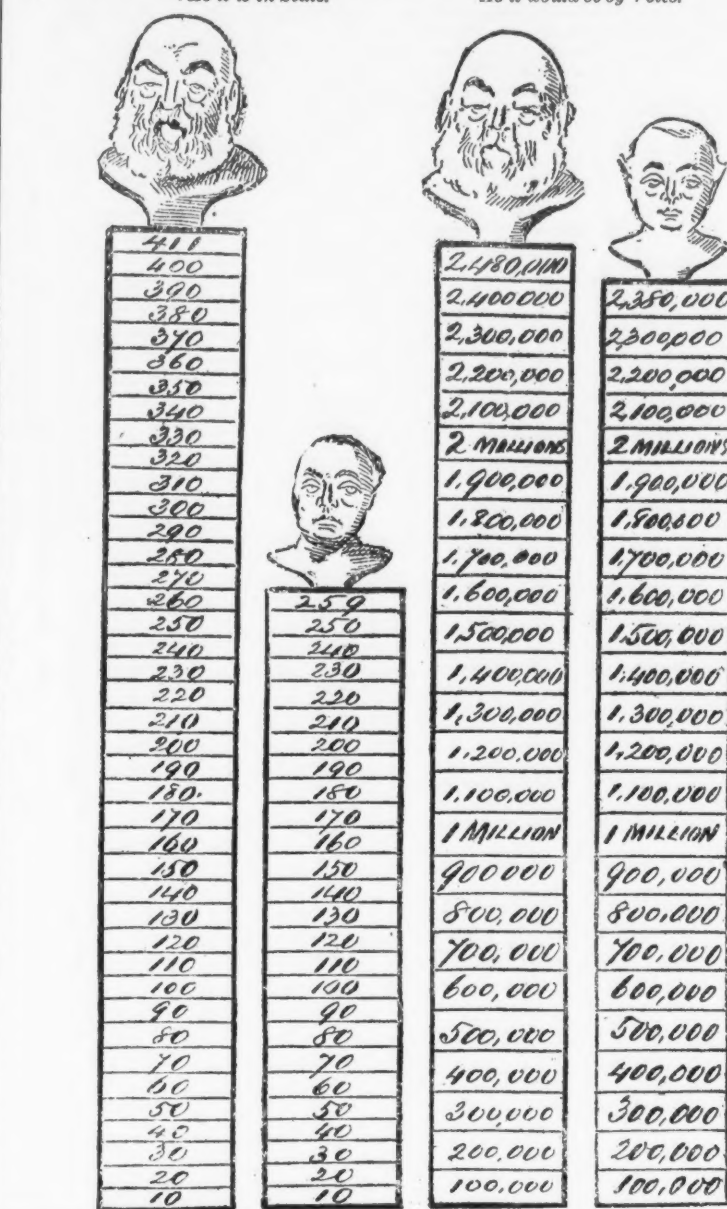 As it is in Seats.
As it would be by Votes.
411
400
390
380
370
360
350
340
330
320
310
300
290
280
270
260
250
240
230
220
210
200
190
180.
170
160
150
140
130
120
110
100
90
80
70
60
50
40
30
20
10
259
250
240
230
220
210
200
190
180
170
160
150
140
130
120
110
100
90
80
70
60
50
40
30
20
10
2,480,000
2,400000
2,300,000
2,200,000
2,100,000
2 MILLIONS
1,900,000
1,800,000
1,700,000
1,600,000
1,500,000
1,400,000
1,300,000
1,200,000
1,100,000
1 MILLION
900000
800,000
700,000
600,000
500,000
400,000
300,000
200,000
100,000
2,380,000
2,300,000
2,200,000
2,100,000
2 MILLIONS
1,900,000
1,800,000
1,700,000
1,600,000
1,500,000
1,400,000
1,300,000
1,200,000
1,100,000
1 MILLION
900,000
800,000
700,000
600,000
500,000
400,000
300,000
200,000
100,000